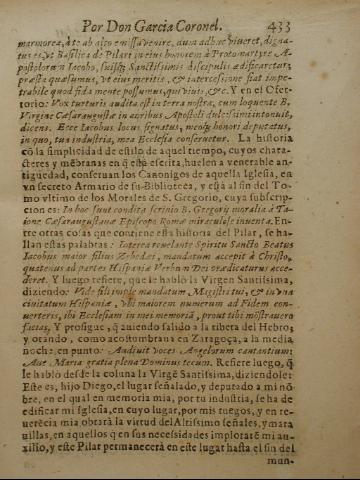 Por Don Garcia Coronel. 433
marmorea, à te ab alto emissa venire, dum adhuc viueret, digna-
tus es, vt Basilica de Pilar in eius honorem à Protomartyre A-
postolorum Iacobo, suisque Sanctissimis discipulis ædificaretur,
præsta quæsumus, vt eius meritis, & intercessione fiat impe-
trabile quod fida mente possumus, qui viuis, &c. Y en el Ofer-
torio: Vox turturis audita est in terra nostra, cum loquente B.
Virgine Cæsaraugustæ in auribus Apostoli dulcissimè intonuit,
dicens. Ecce Iacobus locus signatus, meoque honori deputatus,
in quo, tua industria, mea Ecclesia construetur. La historia
cõ la simplicidad de estilo de aquel tiempo, cuyos chara-
cteres y mẽbranas en q̃ está escrita, huelen a venerable an-
tiguedad, conseruan los Canonigos de aquella Iglesia, en
vn secreto Armario de su Biblioteca, y está al fin del To-
mo vltimo de los Morales de S. Gregorio, cuya subscrip-
cion es: In hoc sunt condita scrinio B. Gregorij moralia à Ta-
ione Cæsaraugustano Episcopo Romæ miraculosè inuenta. En-
tre otras cosas que contiene esta historia del Pilar, se ha-
llan estas palabras: Interea reuelante Spiritu Sancto Beatus
Iacobus maior filius Zebedæi, mandatum accepit à Christo,
quatenus ad partes Hispaniæ Verbum Dei prædicaturus acce-
deret. Y luego refiere, que le habló la Virgen Santissima,
diziendo: Vide fili imple mandatum Magistri tui, & in vna
ciuitatum Hispaniæ, vbi maiorem numerum ad Fidem con-
uerteris, ibi Ecclesiam in mei memoriã, prout tibi mõstrauero
facias. Y prosigue, q̃ auiendo salido a la ribera del Hebro;
y orando, como acostumbraua en Zaragoça, a la media
noche, en punto: Audiuit voces Angelorum cantantium;
Aue Maria gratia plena Dominus tecum. Refiere luego, q̃
le habló desde la coluna la Virgẽ Santissima, diziendole:
Este es, hijo Diego, el lugar señalado, y deputado a mi hõ-
bre, en el qual en memoria mia, por tu industria, se ha de
edificar mi Iglesia, en cuyo lugar, por mis ruegos, y en re-
uerẽcia mia obrarà la virtud del Altissimo señales, y mara
uillas, en aquellos q̃ en sus necessidades implorarẽ mi au-
xilio, y este Pilar permanecerà en este lugar hasta el fin del
mun-